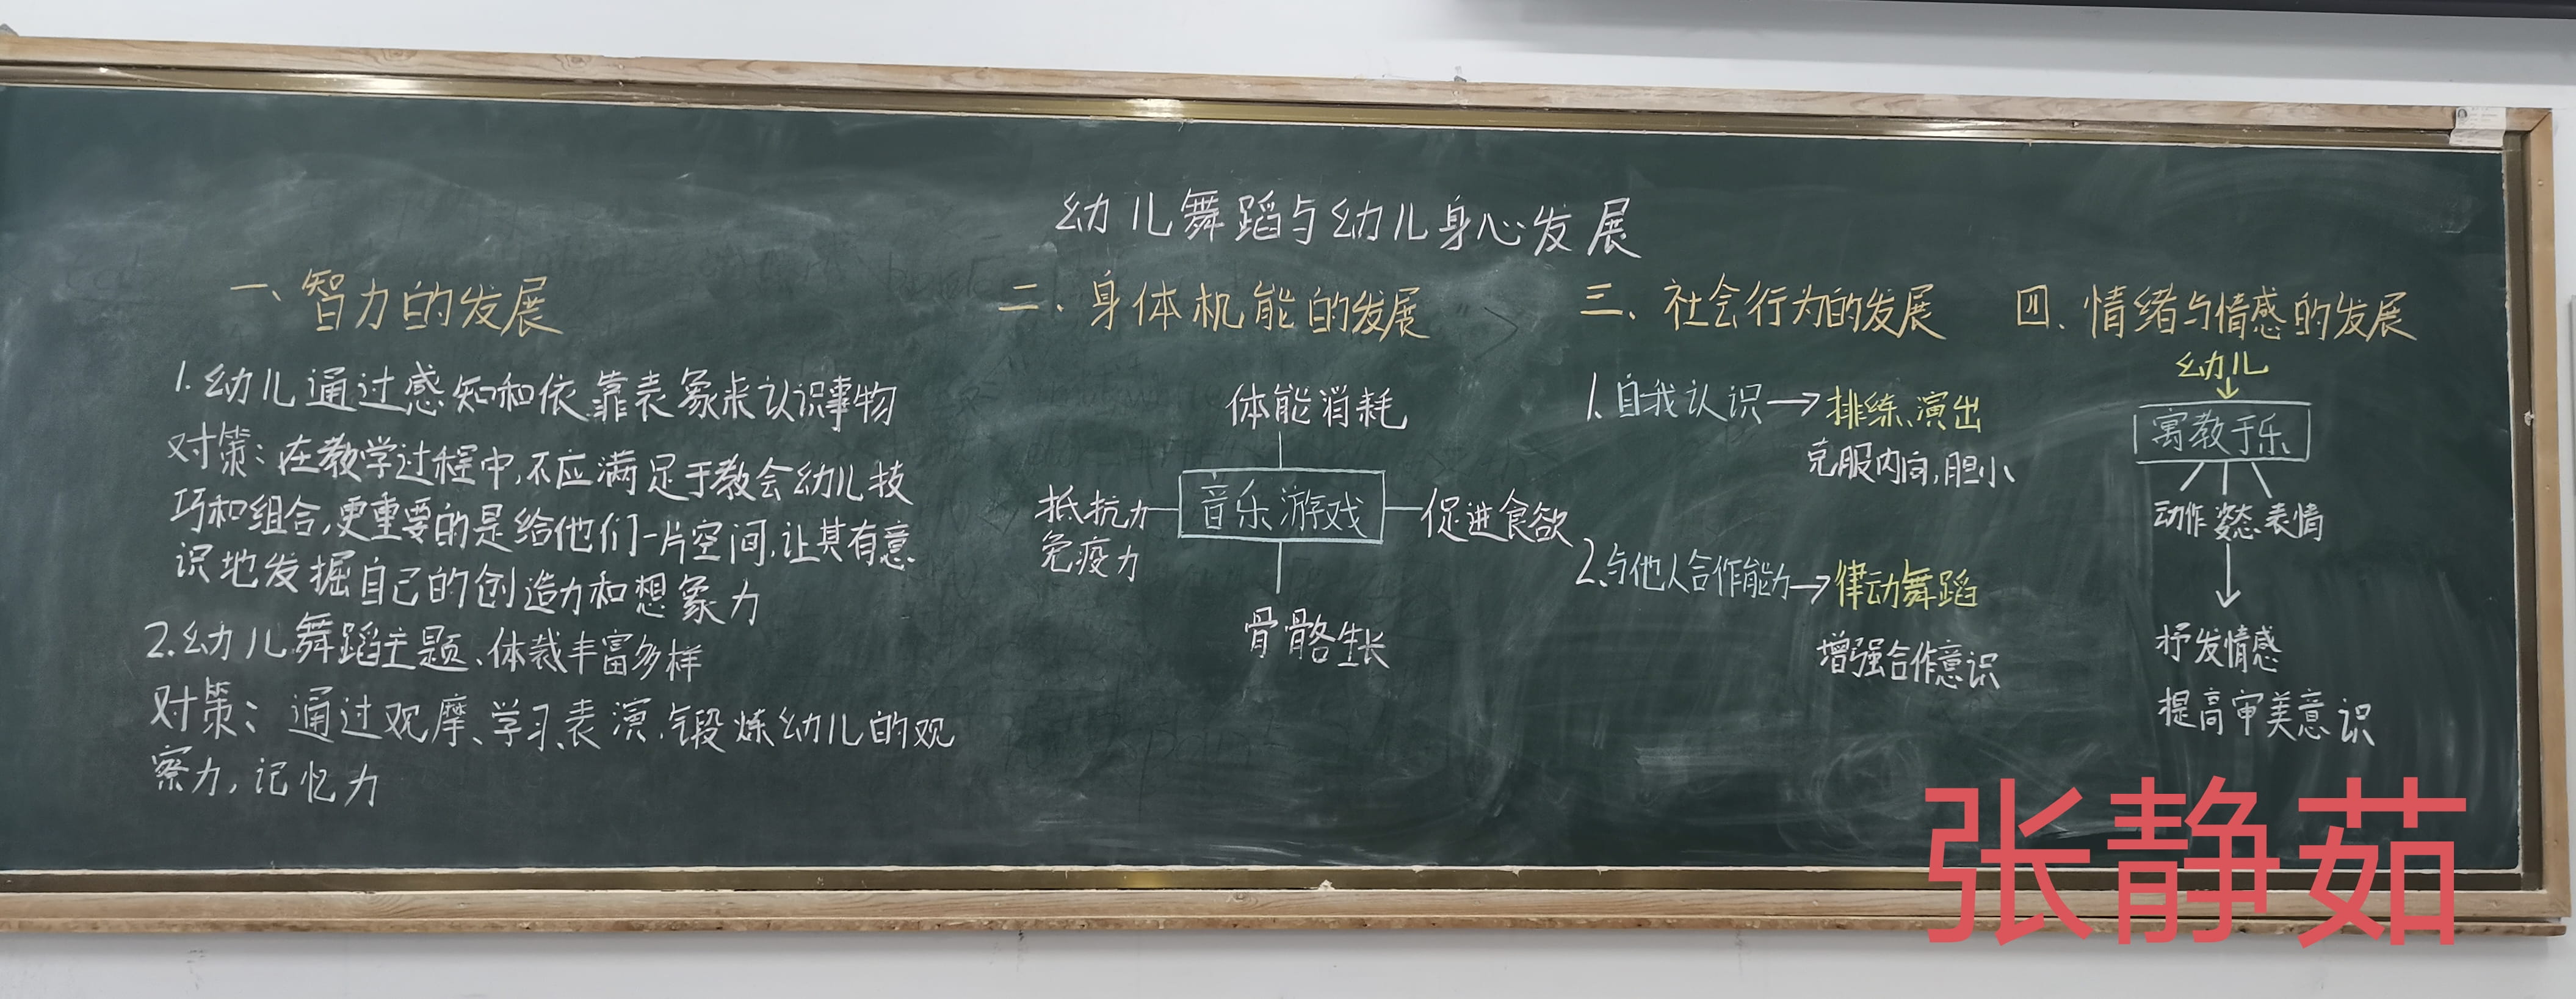 幼儿舞蹈与幼儿身心发展
一、智力的发展
1.幼儿通过感知和依靠表象来认识事物
对策：在教学过程中,不应满足于教会幼儿技
巧和组合,更重要的是给他们一片空间,让其有意
识地发掘自己的创造力和想象力
2.幼儿舞蹈主题、体裁丰富多样
对策：通过观摩、学习、表演,锻炼幼儿的观
察力,记忆力
二、身体机能的发展
体能消耗
抵抗力
免疫力
音乐游戏
促进食欲
骨骼生长
三、社会行为的发展
1.自我认识→排练、演出
克服内向,胆小
2.与他人合作能力→律动舞蹈
增强合作意识
四、情绪与情感的发展
幼儿
寓教于乐
动作 姿态 表情
抒发情感
提高审美意识
张静茹